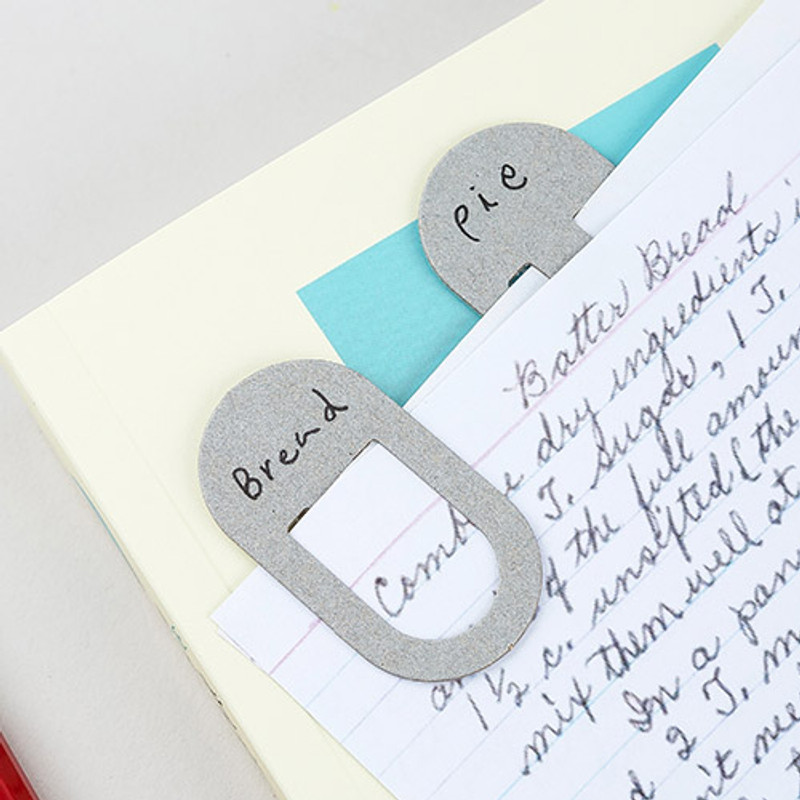 pie
Bread
Batter Bread
Comb e dry ingredients
J. Sugar, 1 J.
of the full amoun
1½ c. unsifted (the
mix them well at
In a pan
d 2 J. m